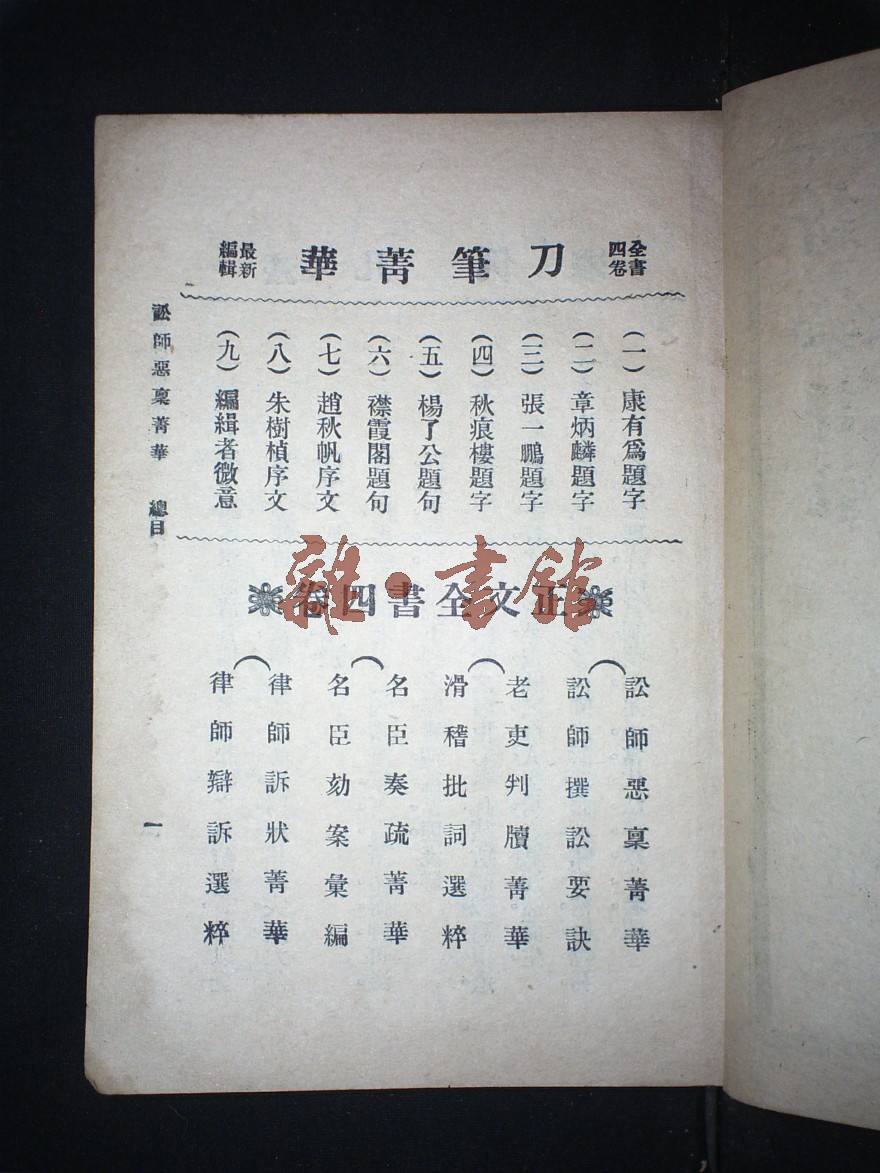 全書四卷
刀筆菁華
最新編輯
(一)康有爲題字
(二)章炳麟題字
(三)張一鵬題字
(四)秋痕樓題字
(五)楊了公題句
(六)襟霞閣題句
(七)趙秋帆序文
(八)朱樹楨序文
(九)編緝者微意
正文全書四卷
訟師惡稟菁華
訟師撰訟要訣
老吏判牘菁華
滑稽批詞選粹
名臣奏疏菁華
名臣劾案彙編
律師訴狀菁華
律師辯訴選粹
訟師惡稟菁華 總目
一
雜·書館